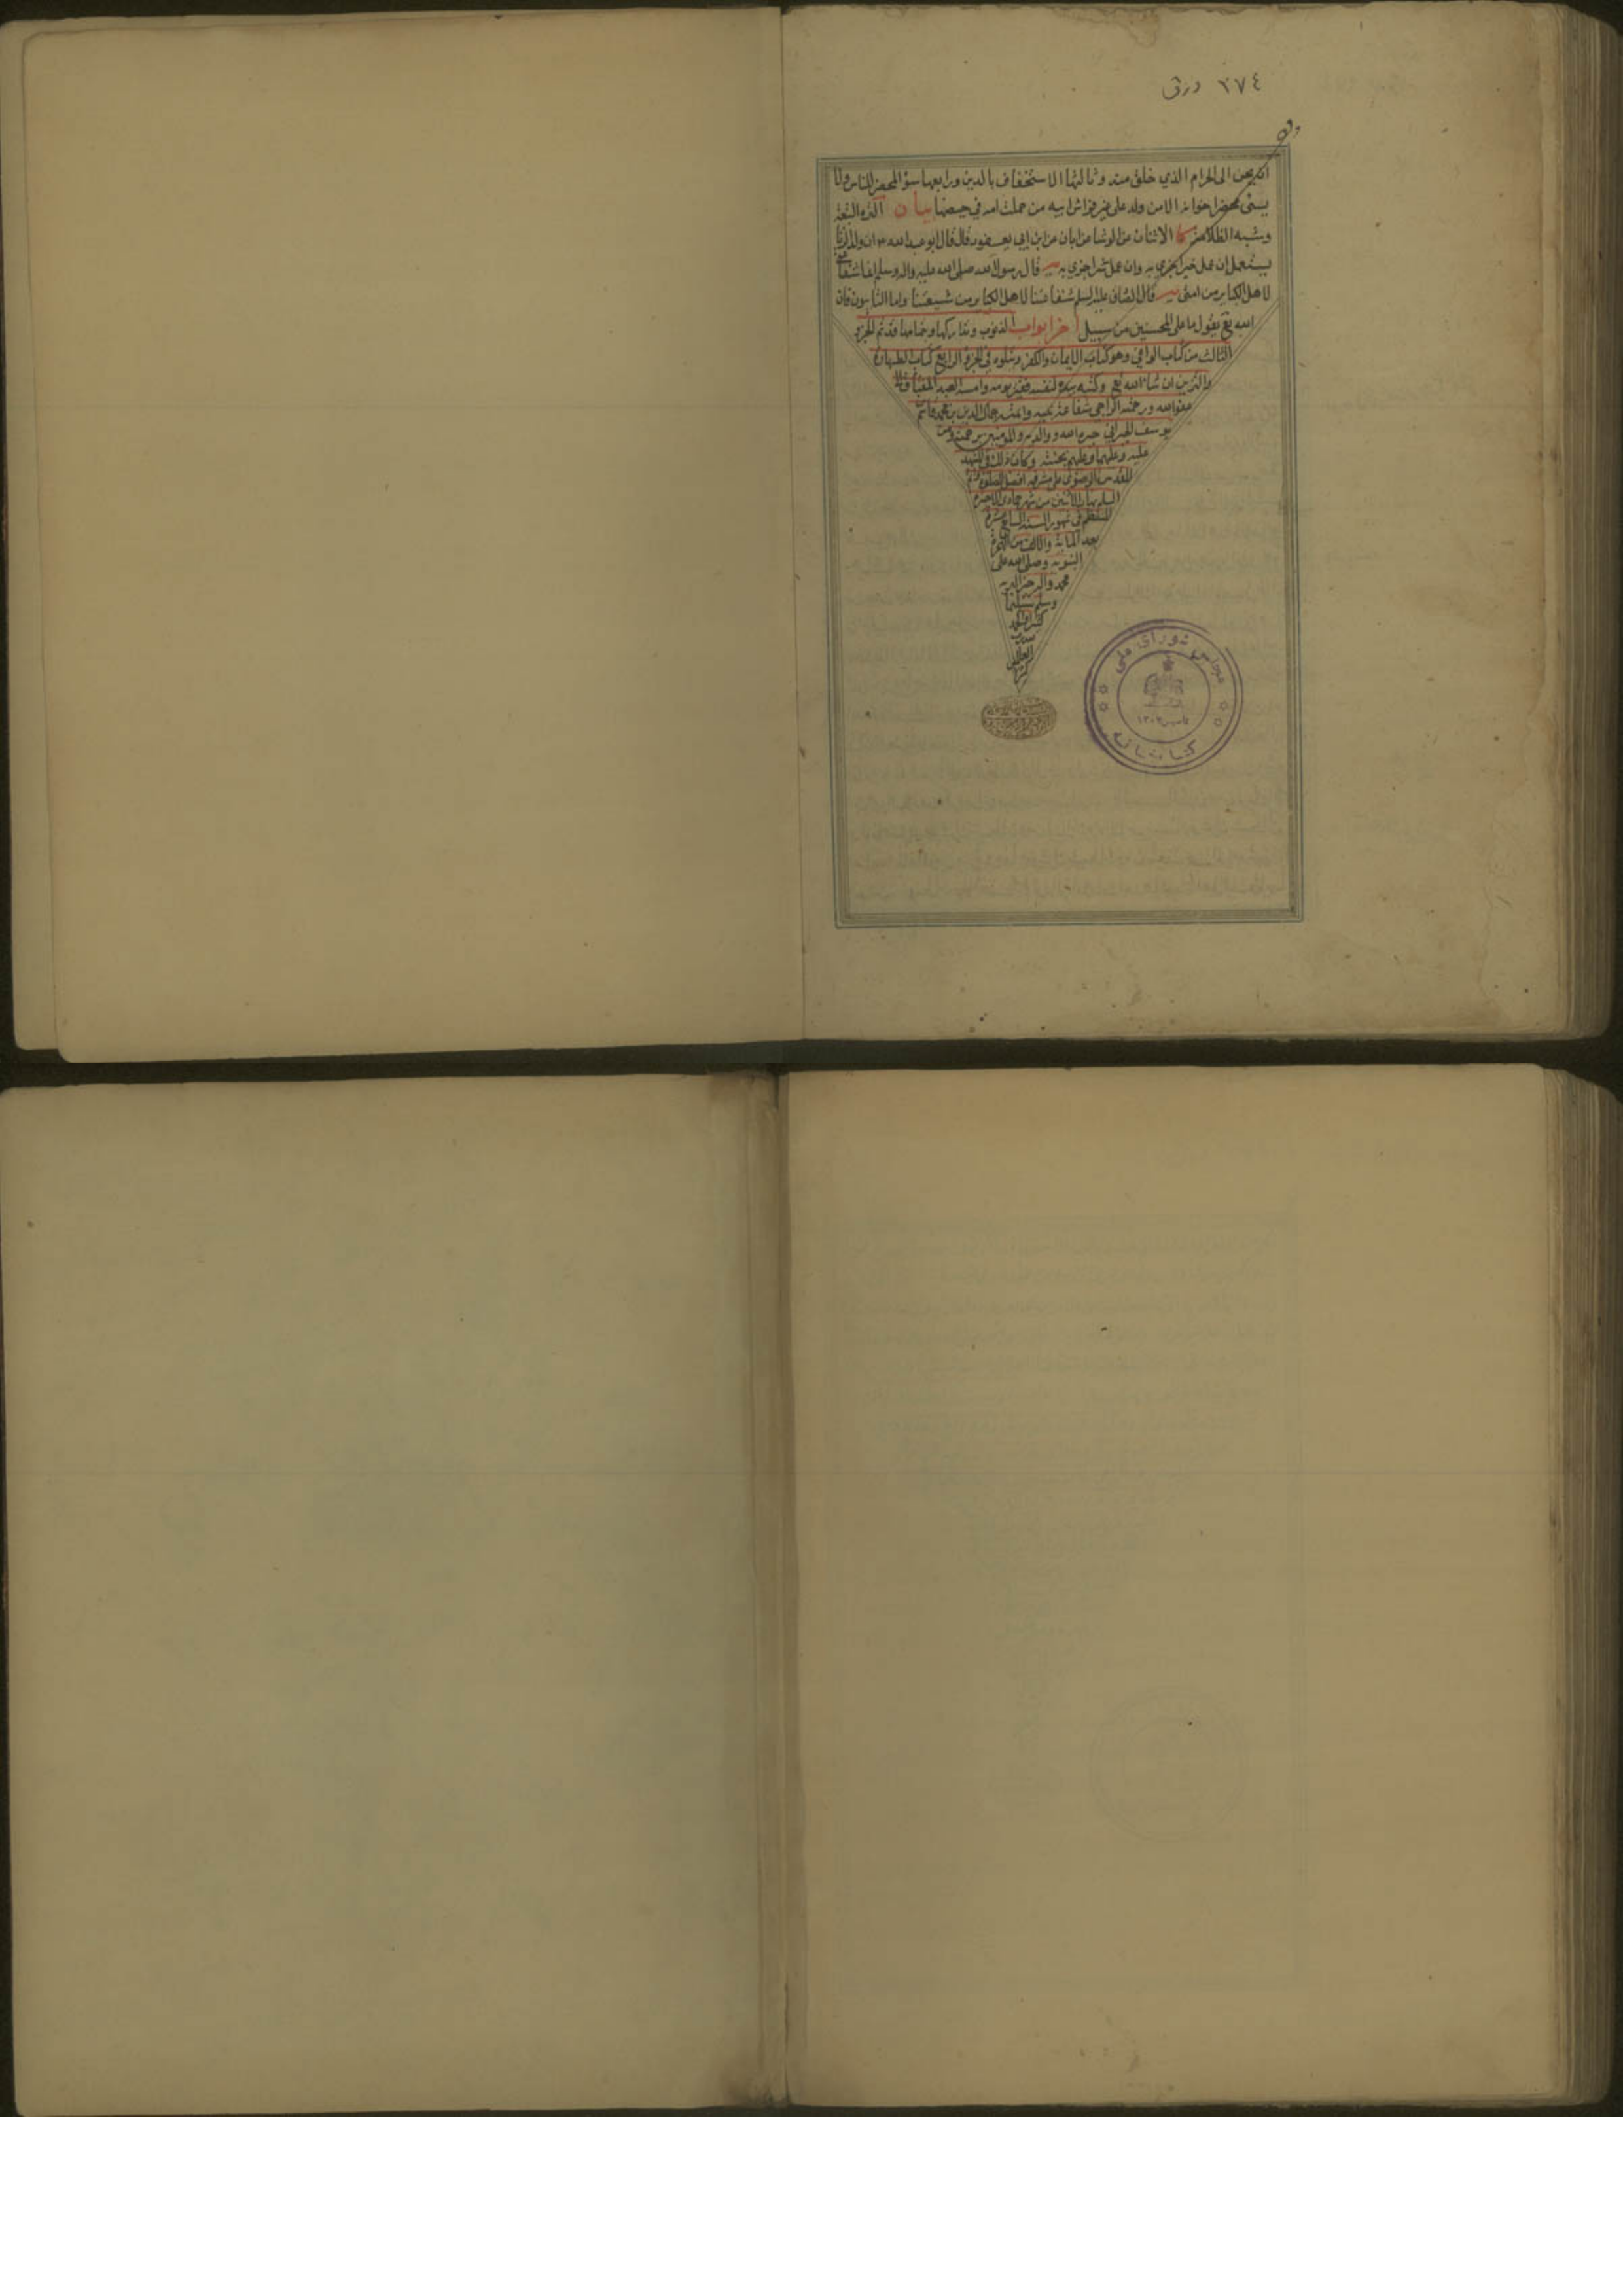 ٢٧٤ ورق
انه يحن الى الحرام الذي خلق منه وثالثها الاستخفاف بالدين ورابعها سوء المحضر للناس ولا
يسئ محضر اخوانه الا من ولد على غير فراش ابيه من حملت امه في حيضها بيان التره التبعة
وشبه الظلامة كا الاثنان عن الوشا عن ابان عن ابن ابي يعفور قال قال ابو عبد الله ان ولد الزنا
يستعمل ان عمل خيرا جزي به وان عمل شرا جزي به يه قال رسول الله صلى الله عليه واله وسلم انما شفاعتي
لاهل الكباير من امتى يه قال الصادق عليه السلم شفاعتنا لاهل الكباير من شيعتنا واما التايبون فان
الله تع يقول ما على المحسنين من سبيل اخر ابواب الذنوب وتداركها وختامها قد تم الجزو
الثالث من كتاب الوافي وهو كتاب الايمان والكفر ويتلوه في الجزو الرابع كتاب الطهارة
والتزين ان شاء الله تع وكتبه بيده لنفسه فقير يومه وامسه العبد
عفو الله ورحمته الراجي شفاعة نبيه وائمته جمال الدين بن محمد قاسم
يوسف والديه والمومنين برحمته ومن
عليه وعليهما وعليهم بجنته وكان ذلك في المشهد
المقدس الرضوي على مشرفه افضل الصلوة و
السلم نهار الاثنين من شهر جمادى الاخره
المنتظم في شهور السنة السابع عشره
بعد المائة والالف من الهجرة
النبويه وصلى الله على
محمد واله
وسلم تسليما
كثيرا والحمد
لله رب
العالمين
مجلس شوراى ملى
تاسيس ١٣٠٢
كتابخانه